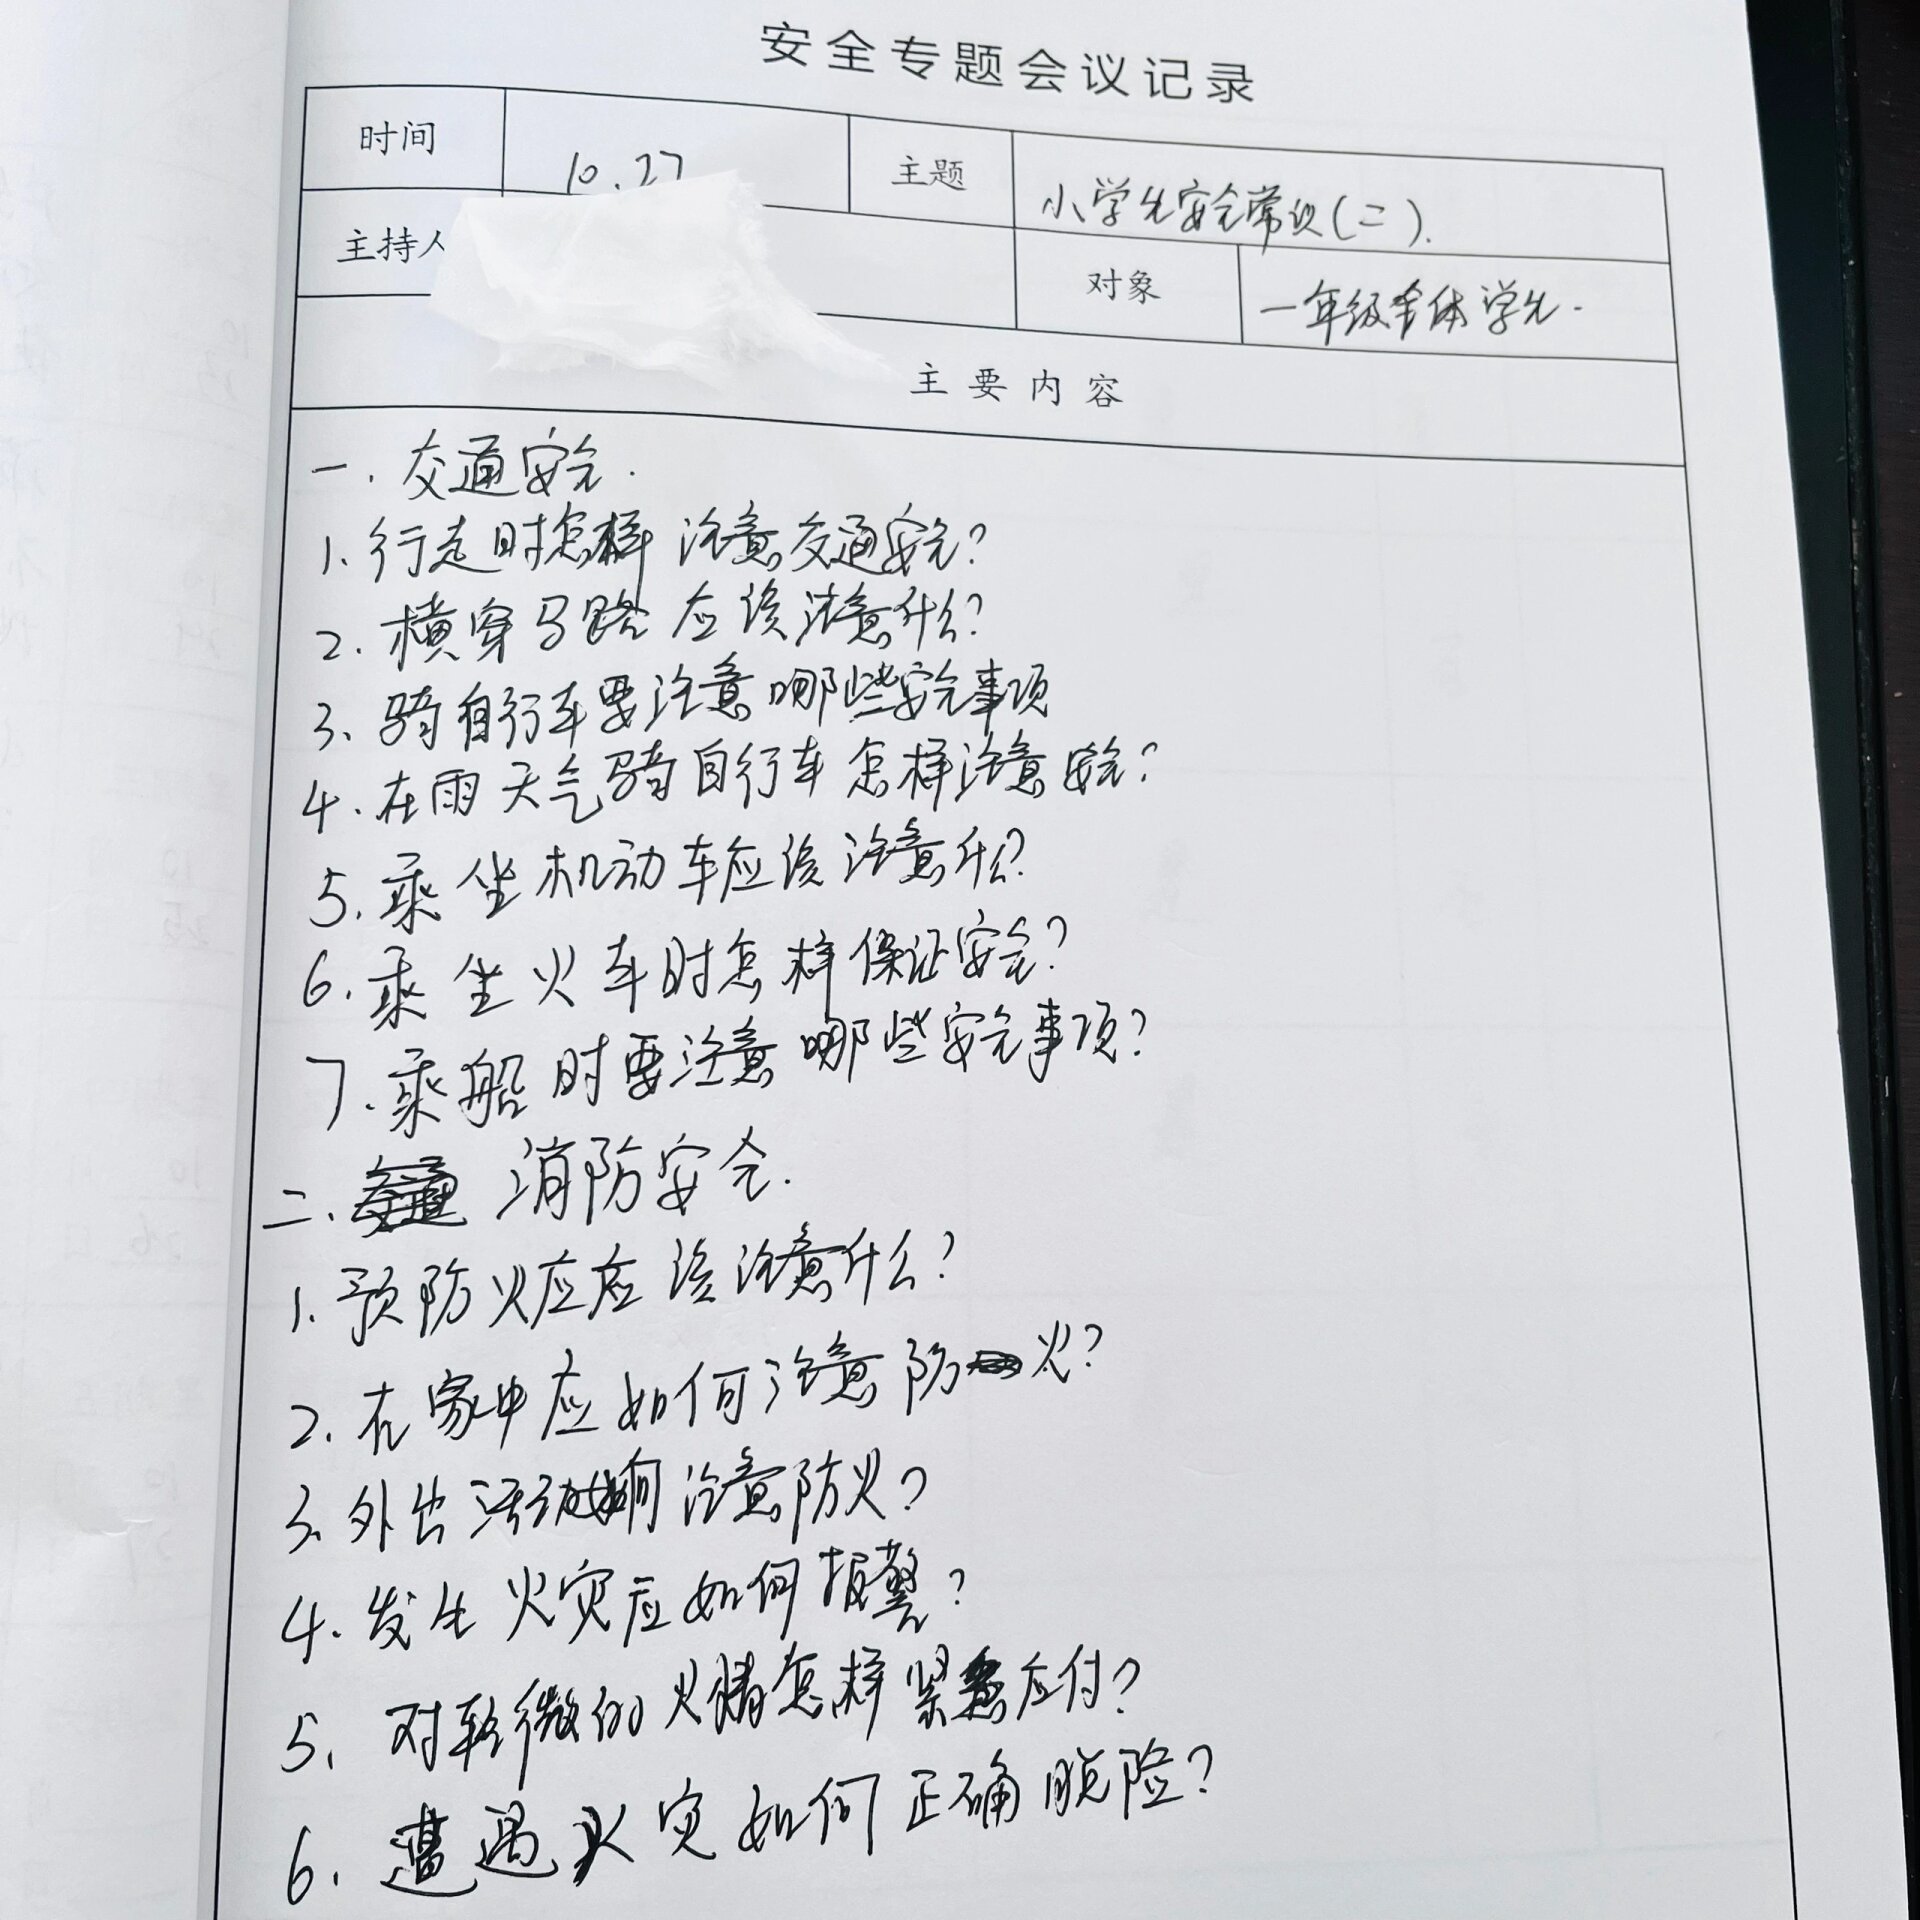 安全专题会议记录
时间 10.27 主题 小学生安全常识(二).
主持人 对象 一年级全体学生.
主要内容
一.交通安全.
1.行走时怎样注意交通安全?
2.横穿马路应该注意什么?
3、骑自行车要注意哪些安全事项
4.在雨天气骑自行车怎样注意安全?
5.乘坐机动车应该注意什么?
6.乘坐火车时怎样保证安全?
7.乘船时要注意哪些安全事项?
二、消防安全.
1.预防火应应该注意什么?
2.在家中应如何注意防火?
3.外出活动如何注意防火?
4.发生火灾应如何报警?
5.对轻微的火情怎样紧急应付?
6.遭遇火灾如何正确脱险?